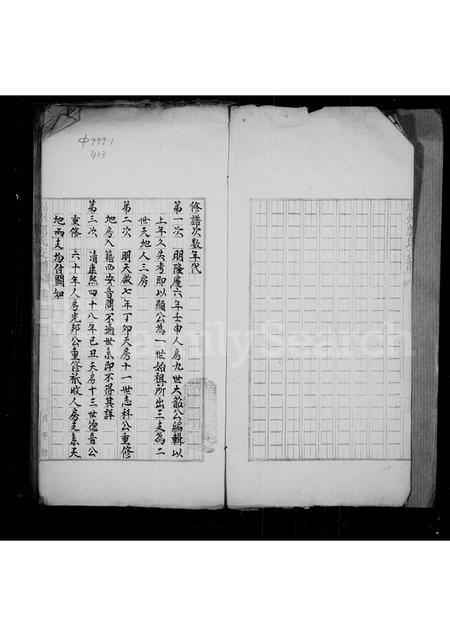 修譜次數年代
第一次 明隆慶六年壬申人房九世大猷公編輯以
上年久失考即以顯公為一世始祖所出三支為二
世天地人三房
第二次 明天啟七年丁卯天房十一世志科公重修
地房入籍四安音問不通世系即不得其詳
第三次 清康熙四十八年己丑天房十三世德音公
重修 六十年人房光邦公重修祇收人房支系天
地兩支均付闕如
Φ999.1
413
FamilySearch